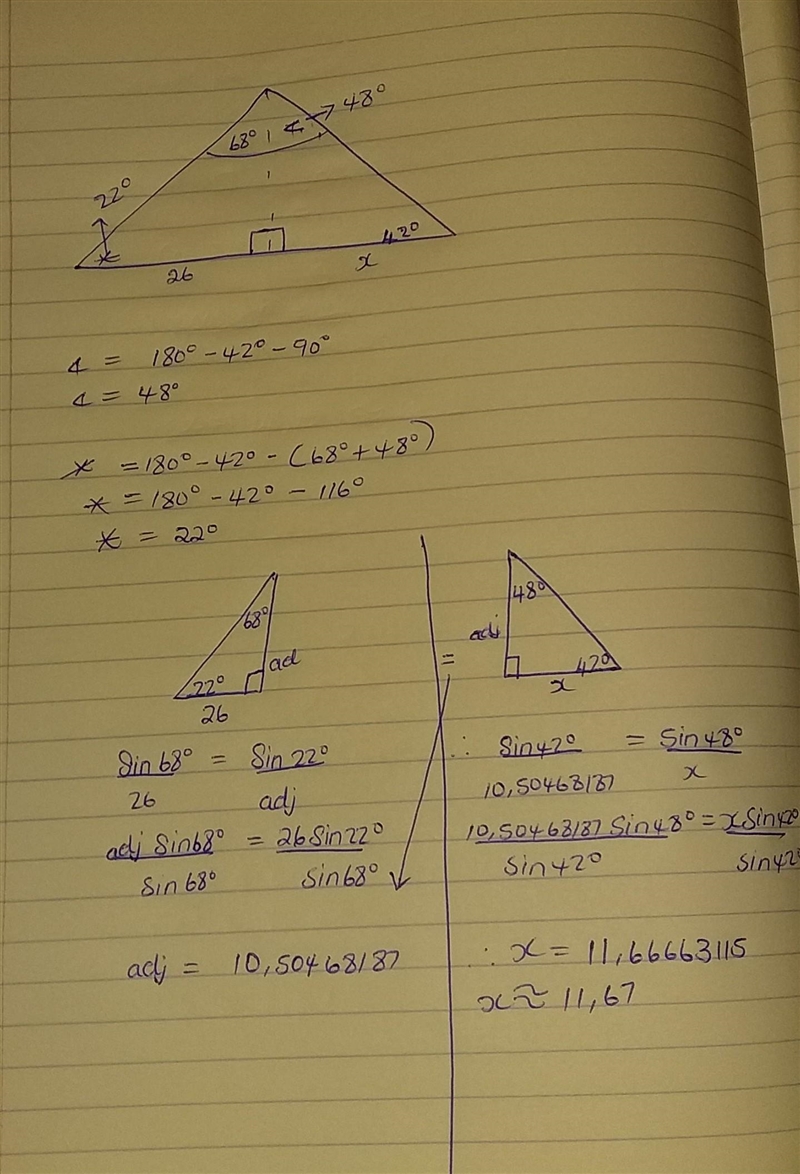 48°
68°
22°
*
42°
26
x
∡ = 180° - 42° - 90°
∡ = 48°
* = 180° - 42° - (68° + 48°)
* = 180° - 42° - 116°
* = 22°
68°
ad
22°
26
=
48°
adj
42°
x
Sin 68° / 26 = Sin 22° / adj
adj Sin 68° / Sin 68° = 26 Sin 22° / Sin 68°
adj = 10,50468187
∴ Sin 42° / 10,50468187 = Sin 48° / x
10,50468187 Sin 48° / Sin 42° = x Sin 42° / Sin 42°
∴ x = 11,66663115
x ≈ 11,67